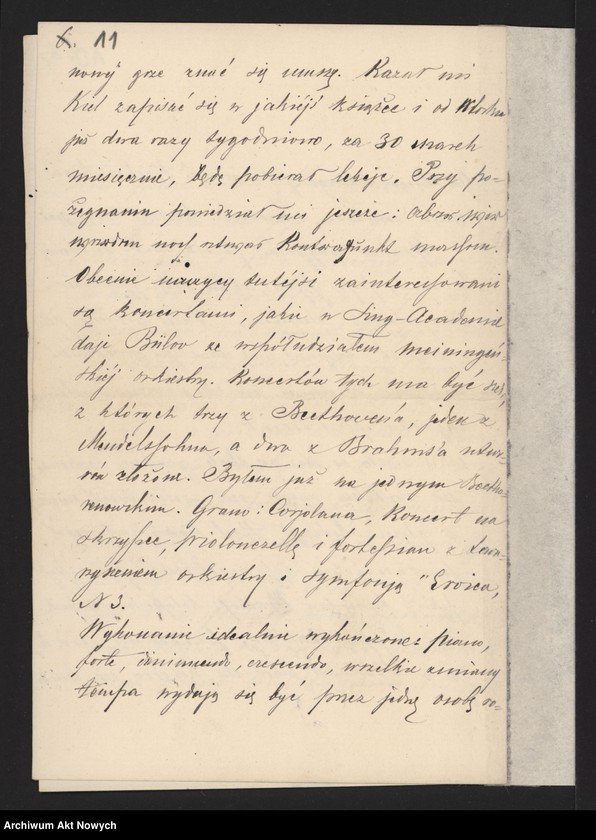 6. 11
nowy" grze znać się muszę. Kazał mi
Kiel zapisać się w jakiejś książce i od Wtorku
już dwa razy tygodniowo, za 30 marek
miesięcznie, będę pobierał lekcje. Przy po-
żegnaniu powiedział mi jeszcze: aber
noch etwas Kontrapunkt machen.
Obecnie muzycy tutejsi zainteresowani
są koncertami, jakie w Sing-Academie
daje Bülov ze współudziałem meiningeń-
skiéj orkiestry. Koncertów tych ma być sześć,
z których trzy z Beethoven'a, jeden z
Mendelssohna, a dwa z Brahms'a utwo-
rów złożone. Byłem już na jednym Beetho-
venowskim. Grano: Corjolana, Koncert na
skrzypce, violonczellę i fortepian z towa-
rzyszeniem orkiestry i symfonją "Eroica,
N 3.
Wykonanie idealnie wykończone: piano,
forte, diminuendo, crescendo, wszelkie zmiany
tempa wydają się być przez jedną osobę ro-
Archiwum Akt Nowych